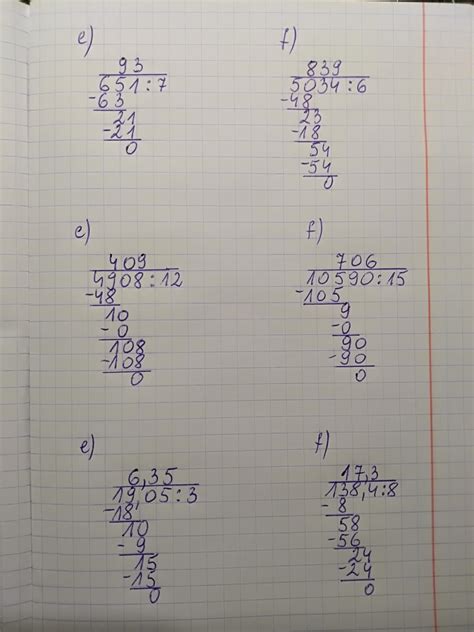 e)
93
651:7
-63
21
-21
0
f)
839
5034:6
-48
23
-18
54
-54
0
e)
409
4908:12
-48
10
-0
108
-108
0
f)
706
10590:15
-105
9
-0
90
-90
0
e)
6,35
19,05:3
-18,
10
-9
15
-15
0
f)
17,3
138,4:8
-8
58
-56
24
-24
0